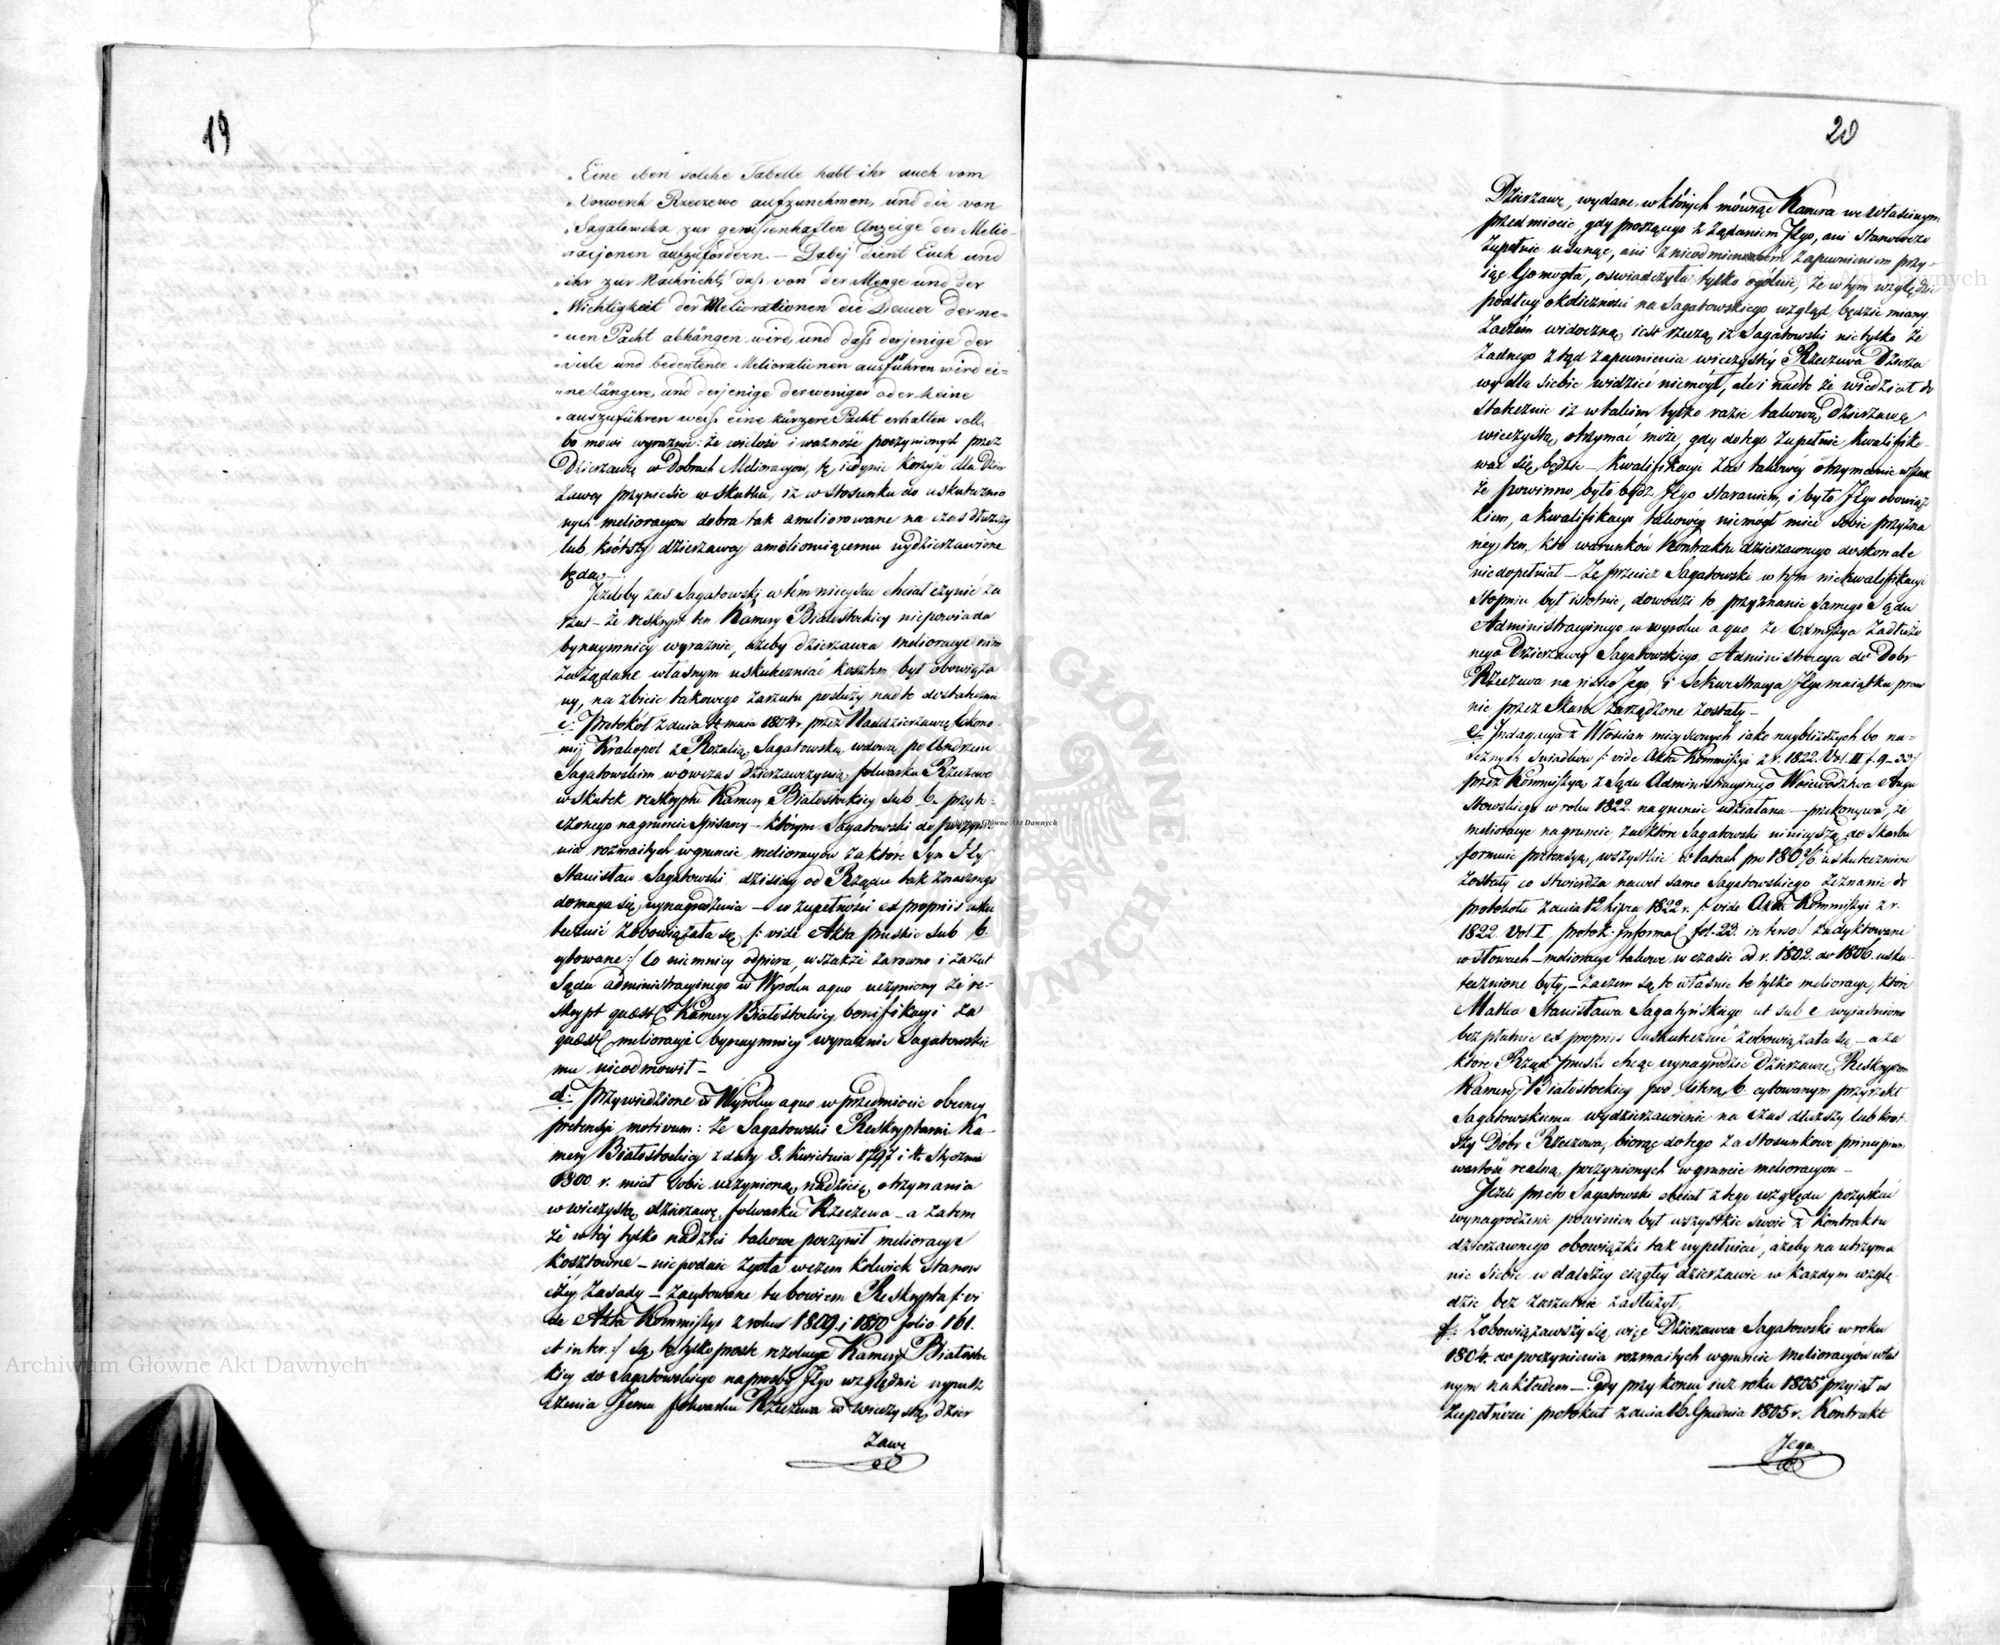 19
„Eine eben solche Tabelle habt ihr auch vom
„Vorwerck Rzeczewo aufzunehmen, und die von
„Sagatowska zur gewissenhaften Anzeige der Melio-
„racjonen aufzufordern. — Dabej dient Euch und
„ihr zur Nachricht, daß von der Menge und der
„Wichtigkeit der Meliorationen die Dauer der ne-
„uen Pacht abhängen wird, und daß derjenige der
„viele und bedeutende Meliorationen ausführen wird ei-
„ne längere, und derjenige der weniger oder keine
„auszuführen weiß eine kürzere Pacht erhalten soll.
bo mówi wyraźnie: że wielość i ważność poczynionych przez
Dzierżawcę w Dobrach Melioracyów, tę iedynie korzyść dla Dzier
żawcy przyniesie w skutku, iż w stosunku do uskutecznio
nych melioracyow dobra tak ameliorowane na czas dłuższy
lub krótszy dzierżawcy ameliorującemu wydzierżawione
będą. —
Jeżeliby zaś Sagatowski w tém mieyscu chciał czynić za
rzut — że reskrypt ten Kamery Białostockiey niepowiada
bynaymniey wyraźnie, ażeby dzierżawca melioracye nim
zażądane własnym uskuteczniać kosztem, był obowiąza
ny, na zbicie takowego zarzutu posłuży nadto dostatecznie
c: Protokół z dnia 4 maia 1804 r. przez Naddzierżawcę Ekono
mij Krakopol z Rozalią Sagatowską, wdową po Andrzeiu
Sagatowskim wówczas dzierżawczynią folwarku Rzeczewo
w skutek reskryptu Kamery Białostockiey sub b. przyto-
czonego na gruncie spisany — którym Sagatowski do poczynie
nia rozmaitych w gruncie melioracyów za które Syn Jey
Stanisław Sagatowski dzisiay od Rządu tak znacznego
domaga się wynagrodzenia — w zupełności ex propriis usku
tecznić zobowiązała się /: vide Akta pruskie sub b.
cytowane :/ Co niemniey odpiera, wszakże zarówno i zarzut
Sądu administracyinego w Wyroku a quo uczyniony że re-
skrypt quaest. Kamery Białostockiey bonifikacyi za
quaest. melioracye bynaymniey wyraźnie Sagatowskie
mu nieodmówił —
d: Przywiedzione w Wyroku a quo w przedmiocie obecney
pretensyi motivum: że Sagatowski Reskryptami Ka-
mery Białostockiey z daty 8. kwietnia 1797 i 4. Stycznia
1800. r. miał sobie uczynioną nadzieię otrzymania
w wieczystą dzierżawę folwarku Rzeczewa — a zatem
że w tey tylko nadziei takowe poczynił melioracye
kosztowne — niepodaie zgoła w czem kolwiek stanow
czey zasady — Zacytowane tu bowiem Reskrypta /: vi
de Akta Kommissyi z roku 1809. i 1810 folio 161.
et inter. :/ są to tylko proste rezolucye Kamery Białosto
ckiey do Sagatowskiego na prośby Jego względnie wypusz
czenia Jemu folwarku Rzeczewa w wieczystą dzier
żawę
20
Dzierżawę, wydane w których mówiąc Kamera we własciwym
przedmiocie, gdy proszącego z żądaniem Jego, ani stanowczo
zupełnie usunąć, ani z nieodmiennem zapewnieniem przy-
iąć Go mogła, oświadczyła tylko ogólnie, że w tym względzie
podług okoliczności na Sagatowskiego wzgląd będzie miany.
Zaczem widoczną iest rzeczą, iż Sagatowski nietylko że
żadnego ztąd zapewnienia wieczystéy Rzeczewa Dzierża
wy dla siebie widzieć niemógł, ale i nadto że wiedział do
statecznie iż w takim tylko razie takową Dzierżawę
wieczystą otrzymać może, gdy do tego zupełnie kwalifiko-
wać się będzie — kwalifikacyi zaś takowéy otrzymanie wszak
że powinno było bydź Jego staraniem, i było Jego obowiąz
kiem, a kwalifikacyi takowéy niemógł mieć sobie przyzna
néy ten, kto warunków Kontraktu dzierżawnego doskonale
niedopełniał — że przecież Sagatowski w tym niekwalifikacyi
stopniu był istotnie, dowodzi to przyznanie samego Sądu
Administracyinego w wyroku a quo że Exmissya zadłużo
nego Dzierżawcy Sagatowskiego, Administracya do Dobr
Rzeczewa na risico Jego, i Sekwestracya Jego maiątku praw
nie przez Skarb zarządzone zostały —
e: Indagacya z Włościan mieyscowych iako naybliższych bo na-
ocznych świadków /: vide Akta Kommissyi z r. 1822. Vol. II f. 9 – 33 :/
przez Kommissyą z Sądu Administracyinego Woiewództwa Augu
stowskiego w roku 1822. na gruncie udziałana — przekonywa, że
melioracye na gruncie za które Sagatowski ninieyszą do Skarbu
formuie pretensyą, wszystkie w latach po 180 2/6 uskutecznione
zostały co stwierdza nawet samo Sagatowskiego zeznanie do
protokołu z dnia 12 lipca 1822 r. /: vide Akta Kommissyi z r.
1822 Vol. I, protok. informac. fol. 22. inverso :/ zadyktowane
w słowach — melioracye takowe w czasie od r. 1802. do 1806. usku-
tecznione były, — Zaczem są to właśnie te tylko melioracye, które
Matka Stanisława Sagatyńskiego ut sub c wyiaśniono
bezpłatnie ex propriis uskutecznić zobowiązała się — a za
które Rząd pruski chcąc wynagrodzić Dzierżawcę Reskryptem
Kamery Białostockiey pod literą b. cytowanym przyrzekł
Sagatowskiemu wydzierżawienie na czas dłuższy lub krót-
szy Dóbr Rzeczewa, biorąc do tego za stosunkowe principium
wartość realną poczynionych w gruncie melioracyów —
Jeżeli przeto Sagatowski chciał z tego względu pozyskać
wynagrodzenie powinien był wszystkie swoie z kontraktu
dzierżawnego obowiązki tak wypełnić, ażeby na utrzyma
nie siebie w dalszéy ciągłéy dzierżawie w każdym wzglę-
dzie bez zarzutnie zasłużył.
f: Zobowiązawszy się więc Dzierżawca Sagatowski w roku
1804. do poczynienia rozmaitych w gruncie melioracyów włas
nym nakładem — gdy przy końcu iuż roku 1805 przyiął w
zupełności protokół z dnia 16. Grudnia 1805 r. Kontrakt
Jego
Archiwum Główne Akt Dawnych
Archiwum Główne Akt Dawnych